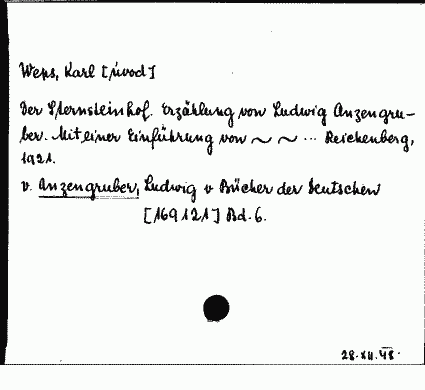 Weps, Karl [úvod]
Der Sternsteinhof. Erzählung von Ludwig Anzengru-
ber. Mit einer Einführung von ~ ~ ... Reichenberg,
1921.
v. Anzengruber, Ludwig v Bücher der Deutschen
[169121] Bd. 6.
28.XII.48.